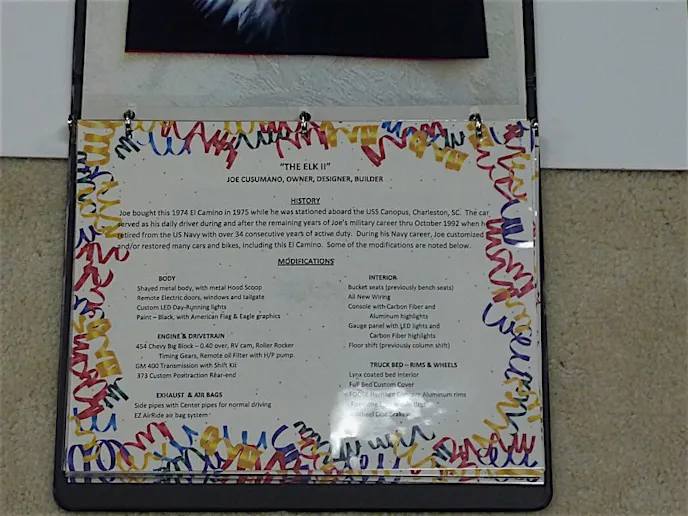 "THE ELK II"
JOE CUSUMANO, OWNER, DESIGNER, BUILDER
HISTORY
Joe bought this 1974 El Camino in 1975 while he was stationed aboard the USS Canopus, Charleston, SC. The car
served as his daily driver during and after the remaining years of Joe's military career thru October 1992 when he
retired from the US Navy with over 34 consecutive years of active duty. During his Navy career, Joe customized
and/or restored many cars and bikes, including this El Camino. Some of the modifications are noted below.
MODIFICATIONS
BODY
Shayed metal body, with metal Hood Scoop
Remote Electric doors, windows and tailgate
Custom LED Day-Running lights
Paint – Black, with American Flag & Eagle graphics
ENGINE & DRIVETRAIN
454 Chevy Big Block – 0.40 over, RV cam, Roller Rocker
Timing Gears, Remote oil Filter with H/P pump
GM 400 Transmission with Shift Kit
373 Custom Positraction Rear-end
EXHAUST & AIR BAGS
Side pipes with Center pipes for normal driving
EZ AirRide air bag system
INTERIOR
Bucket seats (previously bench seats)
All New Wiring
Console with Carbon Fiber and
Aluminum highlights
Gauge panel with LED lights and
Carbon Fiber highlights
Floor shift (previously column shift)
TRUCK BED – RIMS & WHEELS
Lynx coated bed interior
Full Bed Custom Cover
Aluminum rims